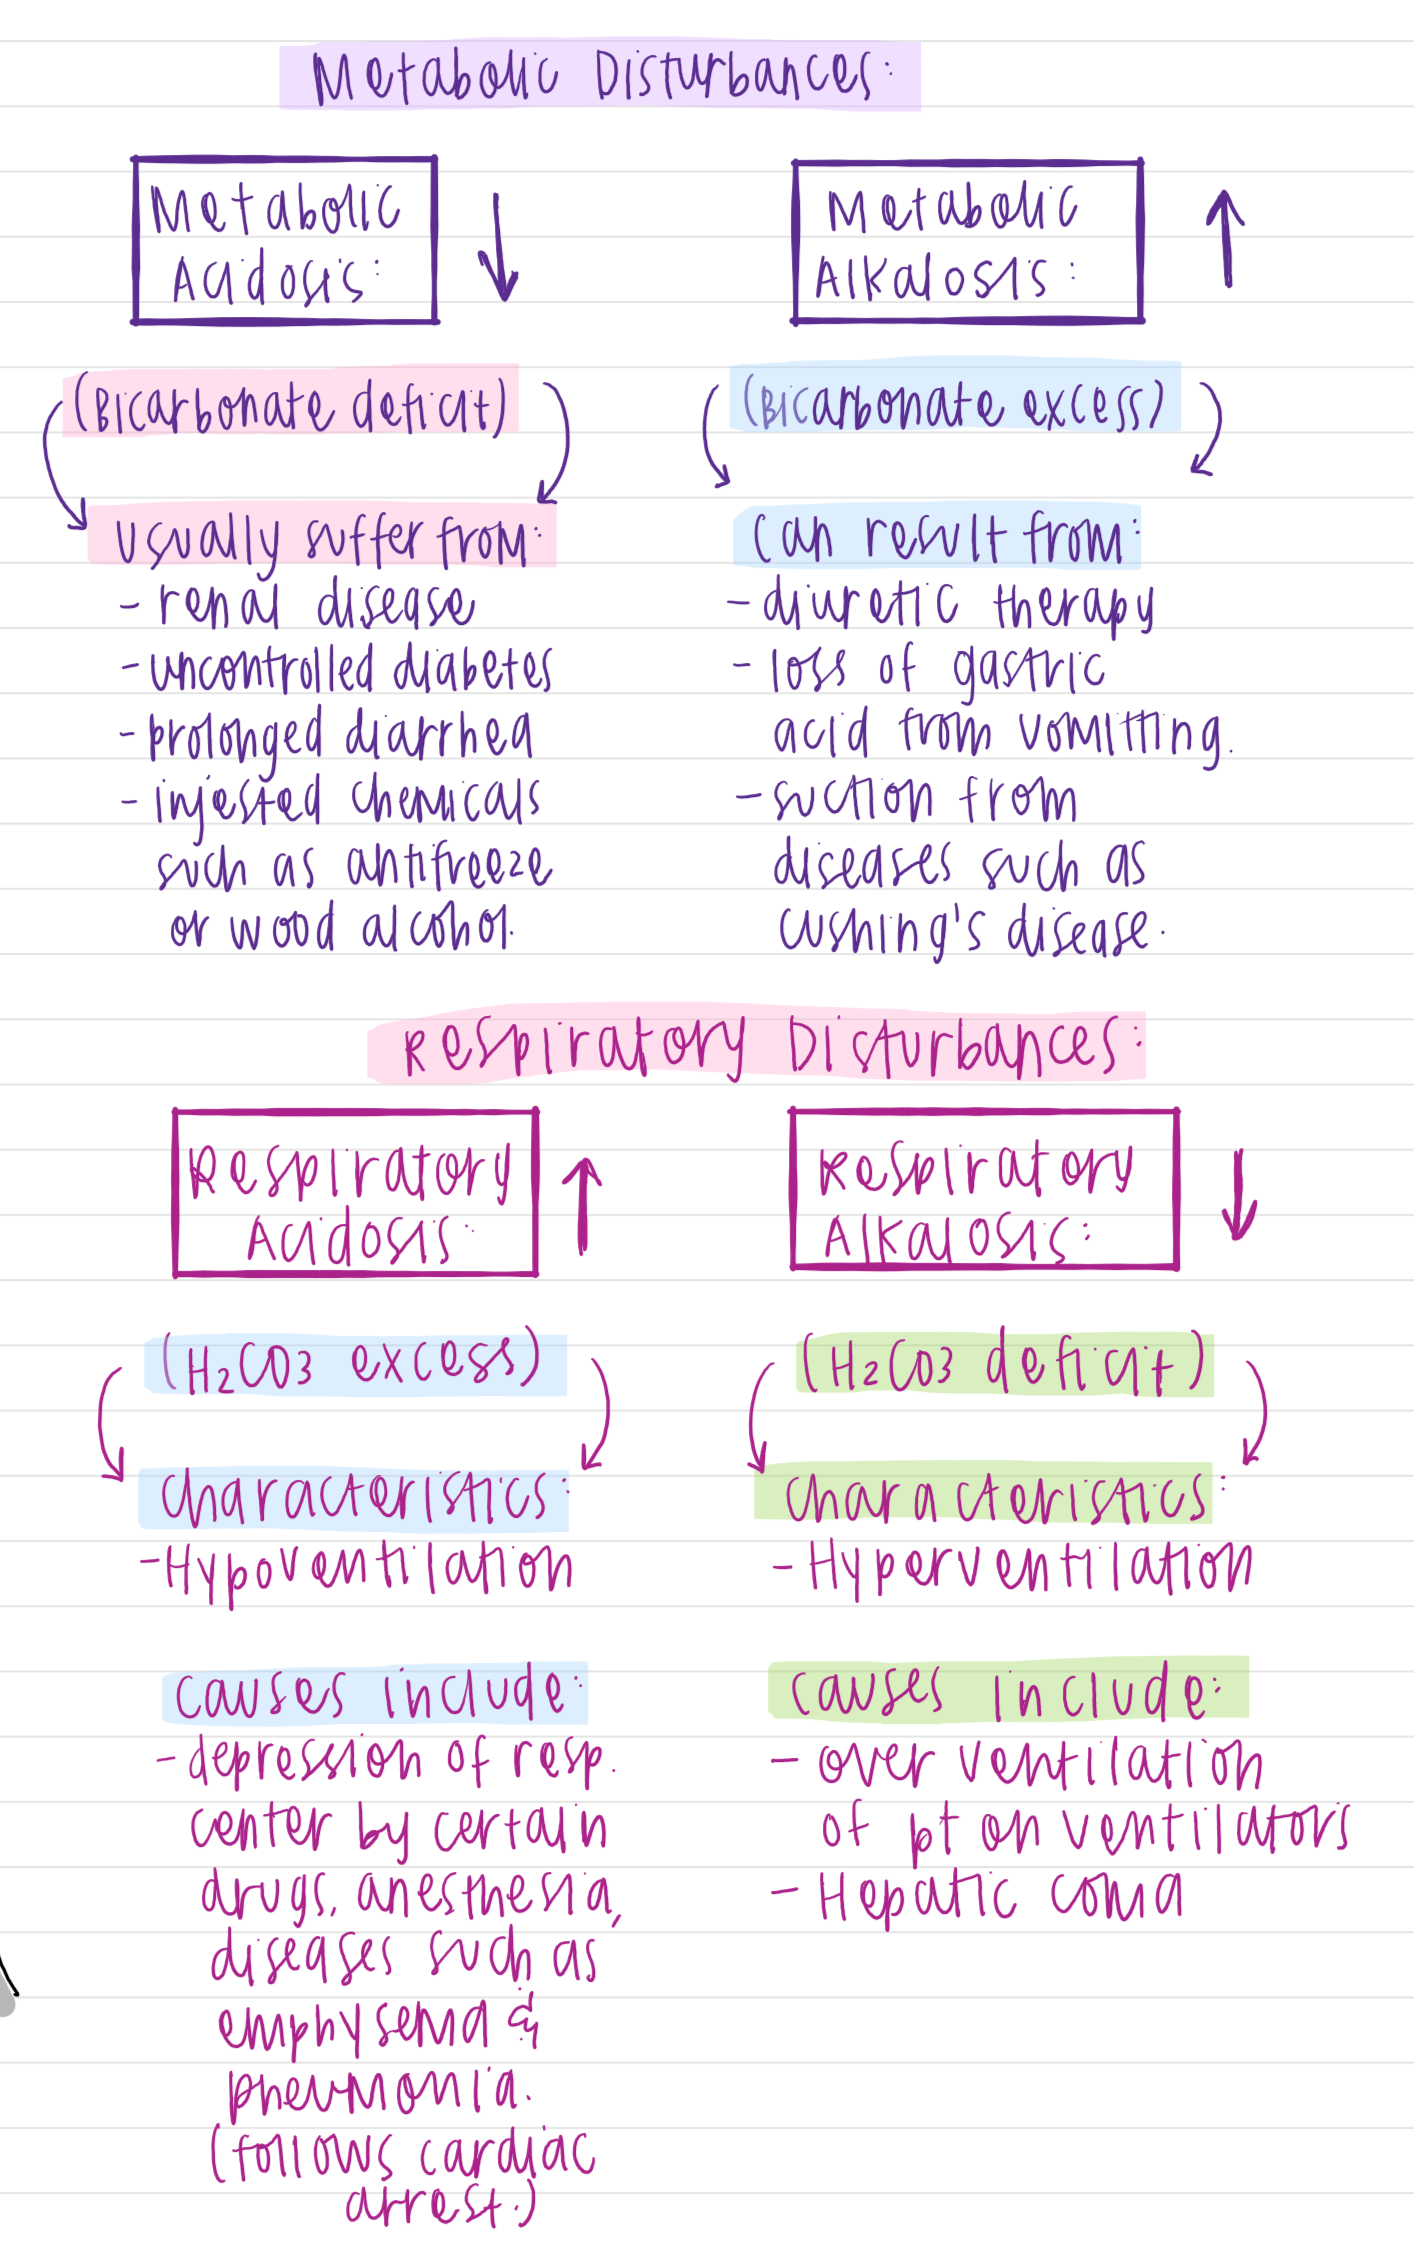 Metabolic Disturbances:
Metabolic
Acidosis:
↓
(Bicarbonate deficit)
usually suffer from:
- renal disease
- uncontrolled diabetes
- prolonged diarrhea
- injested chemicals
such as antifreeze
or wood alcohol.
Metabolic
Alkalosis:
↑
(Bicarbonate excess)
can result from:
- diuretic therapy
- loss of gastric
acid from vomitting.
- suction from
diseases such as
cushing's disease.
Respiratory Disturbances:
Respiratory
Acidosis:
↑
(H2CO3 excess)
characteristics:
- Hypoventilation
causes include:
- depression of resp.
center by certain
drugs, anesthesia,
diseases such as
emphysema &
pneumonia.
(follows cardiac
arrest.)
Respiratory
Alkalosis:
↓
(H2CO3 deficit)
characteristics:
- Hyperventilation
causes include:
- over ventilation
of pt on ventilators
- Hepatic coma